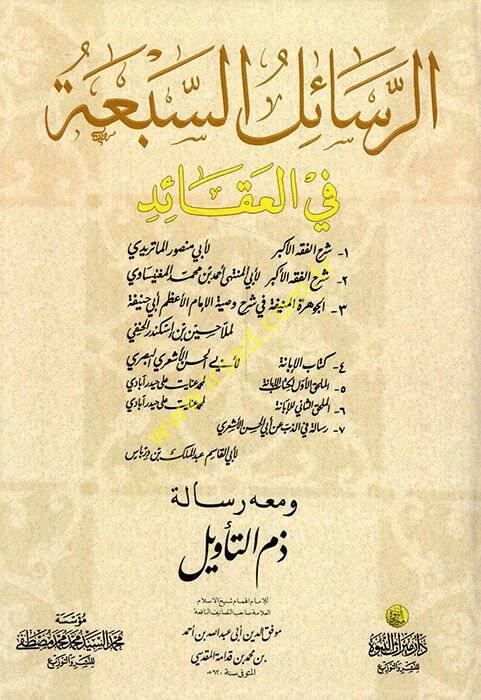 الرسائل السبعة
في العقائد
١- شرح الفقه الأكبر لأبي منصور الماتريدي
٢- شرح الفقه الأكبر لأبي المنتهى أحمد بن محمد المغنيساوي
٣- الجوهرة المنيفة في شرح وصية الإمام الأعظم أبي حنيفة
لملا حسين بن إسكندر الحنفي
٤- كتاب الإبانة لأبي الحسن الأشعري البصري
٥- الملحق الأول لكتاب الإبانة لمحمد عنايت علي حيدرآبادي
٦- الملحق الثاني للإبانة لمحمد عنايت علي حيدرآبادي
٧- رسالة في الذب عن أبي الحسن الأشعري
لأبي القاسم عبد الملك بن درباس
ومعه رسالة
ذم التأويل
للإمام الهمام شيخ الإسلام
العلامة صاحب التصانيف النافعة
موفق الدين أبي عبد الله بن أحمد
بن محمد بن قدامة المقدسي
المتوفى سنة ٦٢٠هـ
دار ميراث النبوة
للنشر والتوزيع
مؤسسة
محمد السيد محمد محمد مصطفى
للنشر والتوزيع